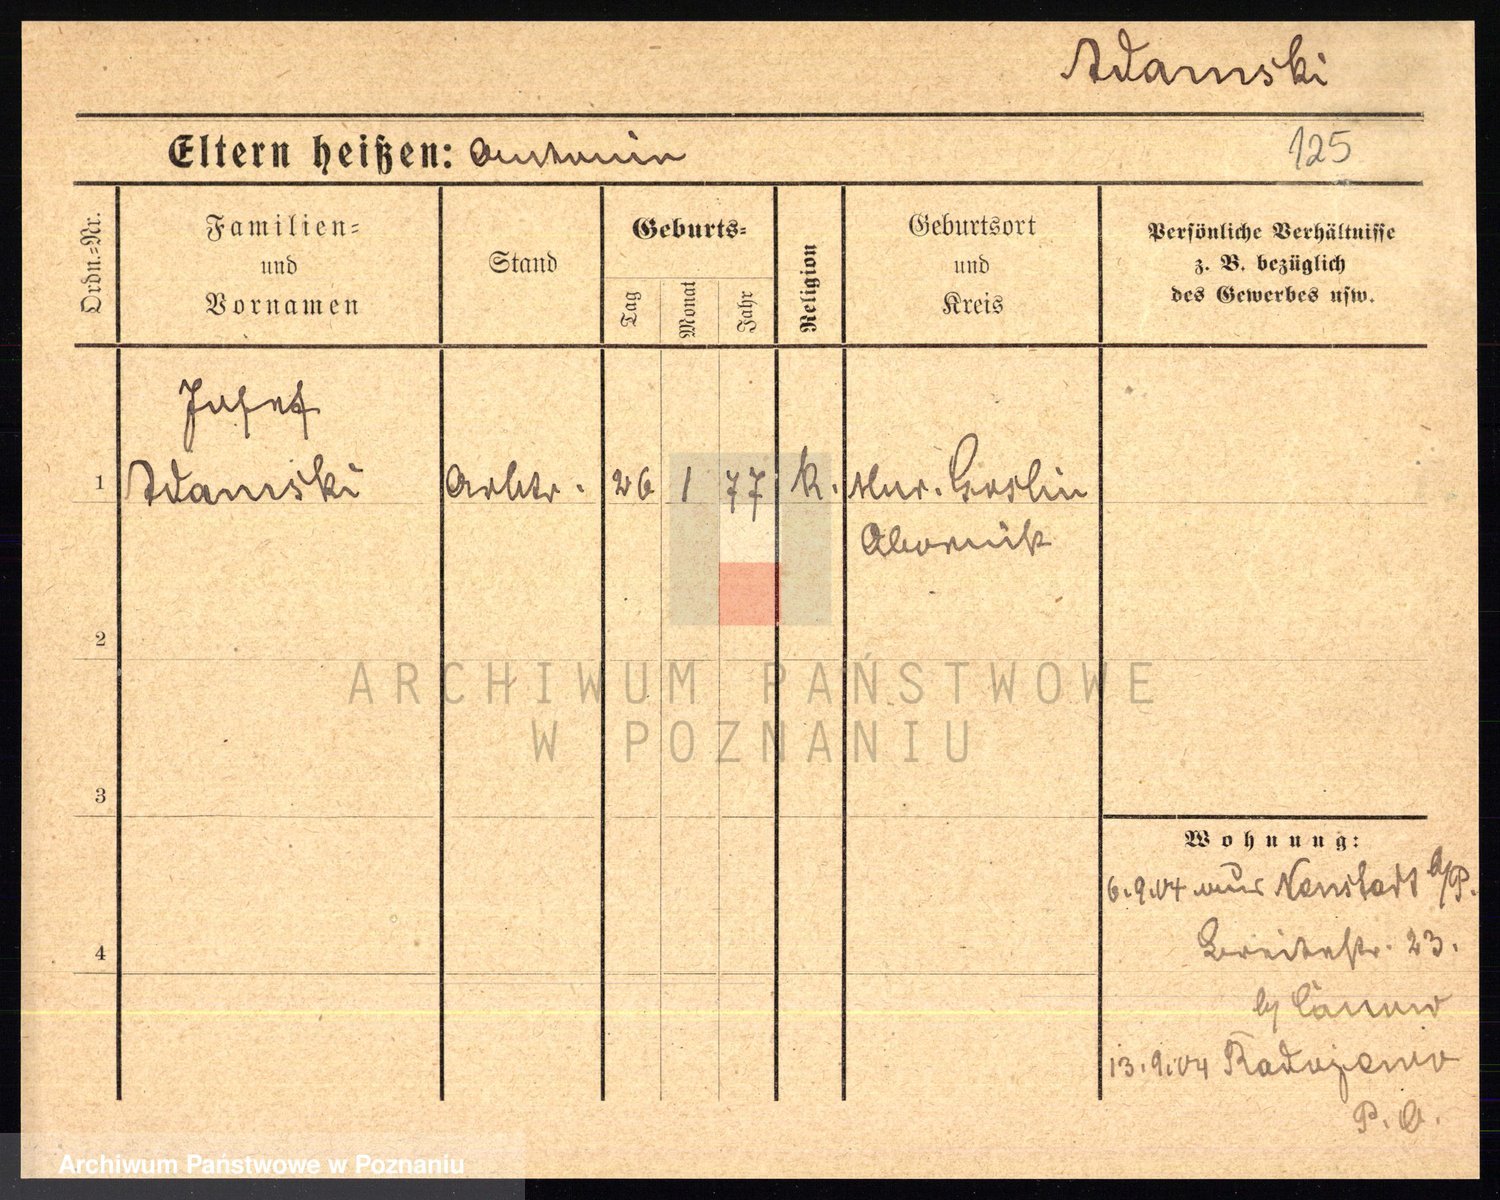 Adamski
Eltern heißen: Antonin
125
Ordn.-Nr.
Familien-
und
Vornamen
Stand
Geburts-
Tag
Monat
Jahr
Religion
Geburtsort
und
Kreis
Persönliche Verhältnisse
z. B. bezüglich
des Gewerbes usw.
Josef
1 Adamski Arbtr. 26 1 77 k. Mur. Goslin
Obornik
2
3
4
Wohnung:
6.9.04 aus Neustadt b/P.
Breitestr. 23.
by
13.9.04 Radojewo
P. O.
ARCHIWUM PAŃSTWOWE
W POZNANIU
Archiwum Państwowe w Poznaniu